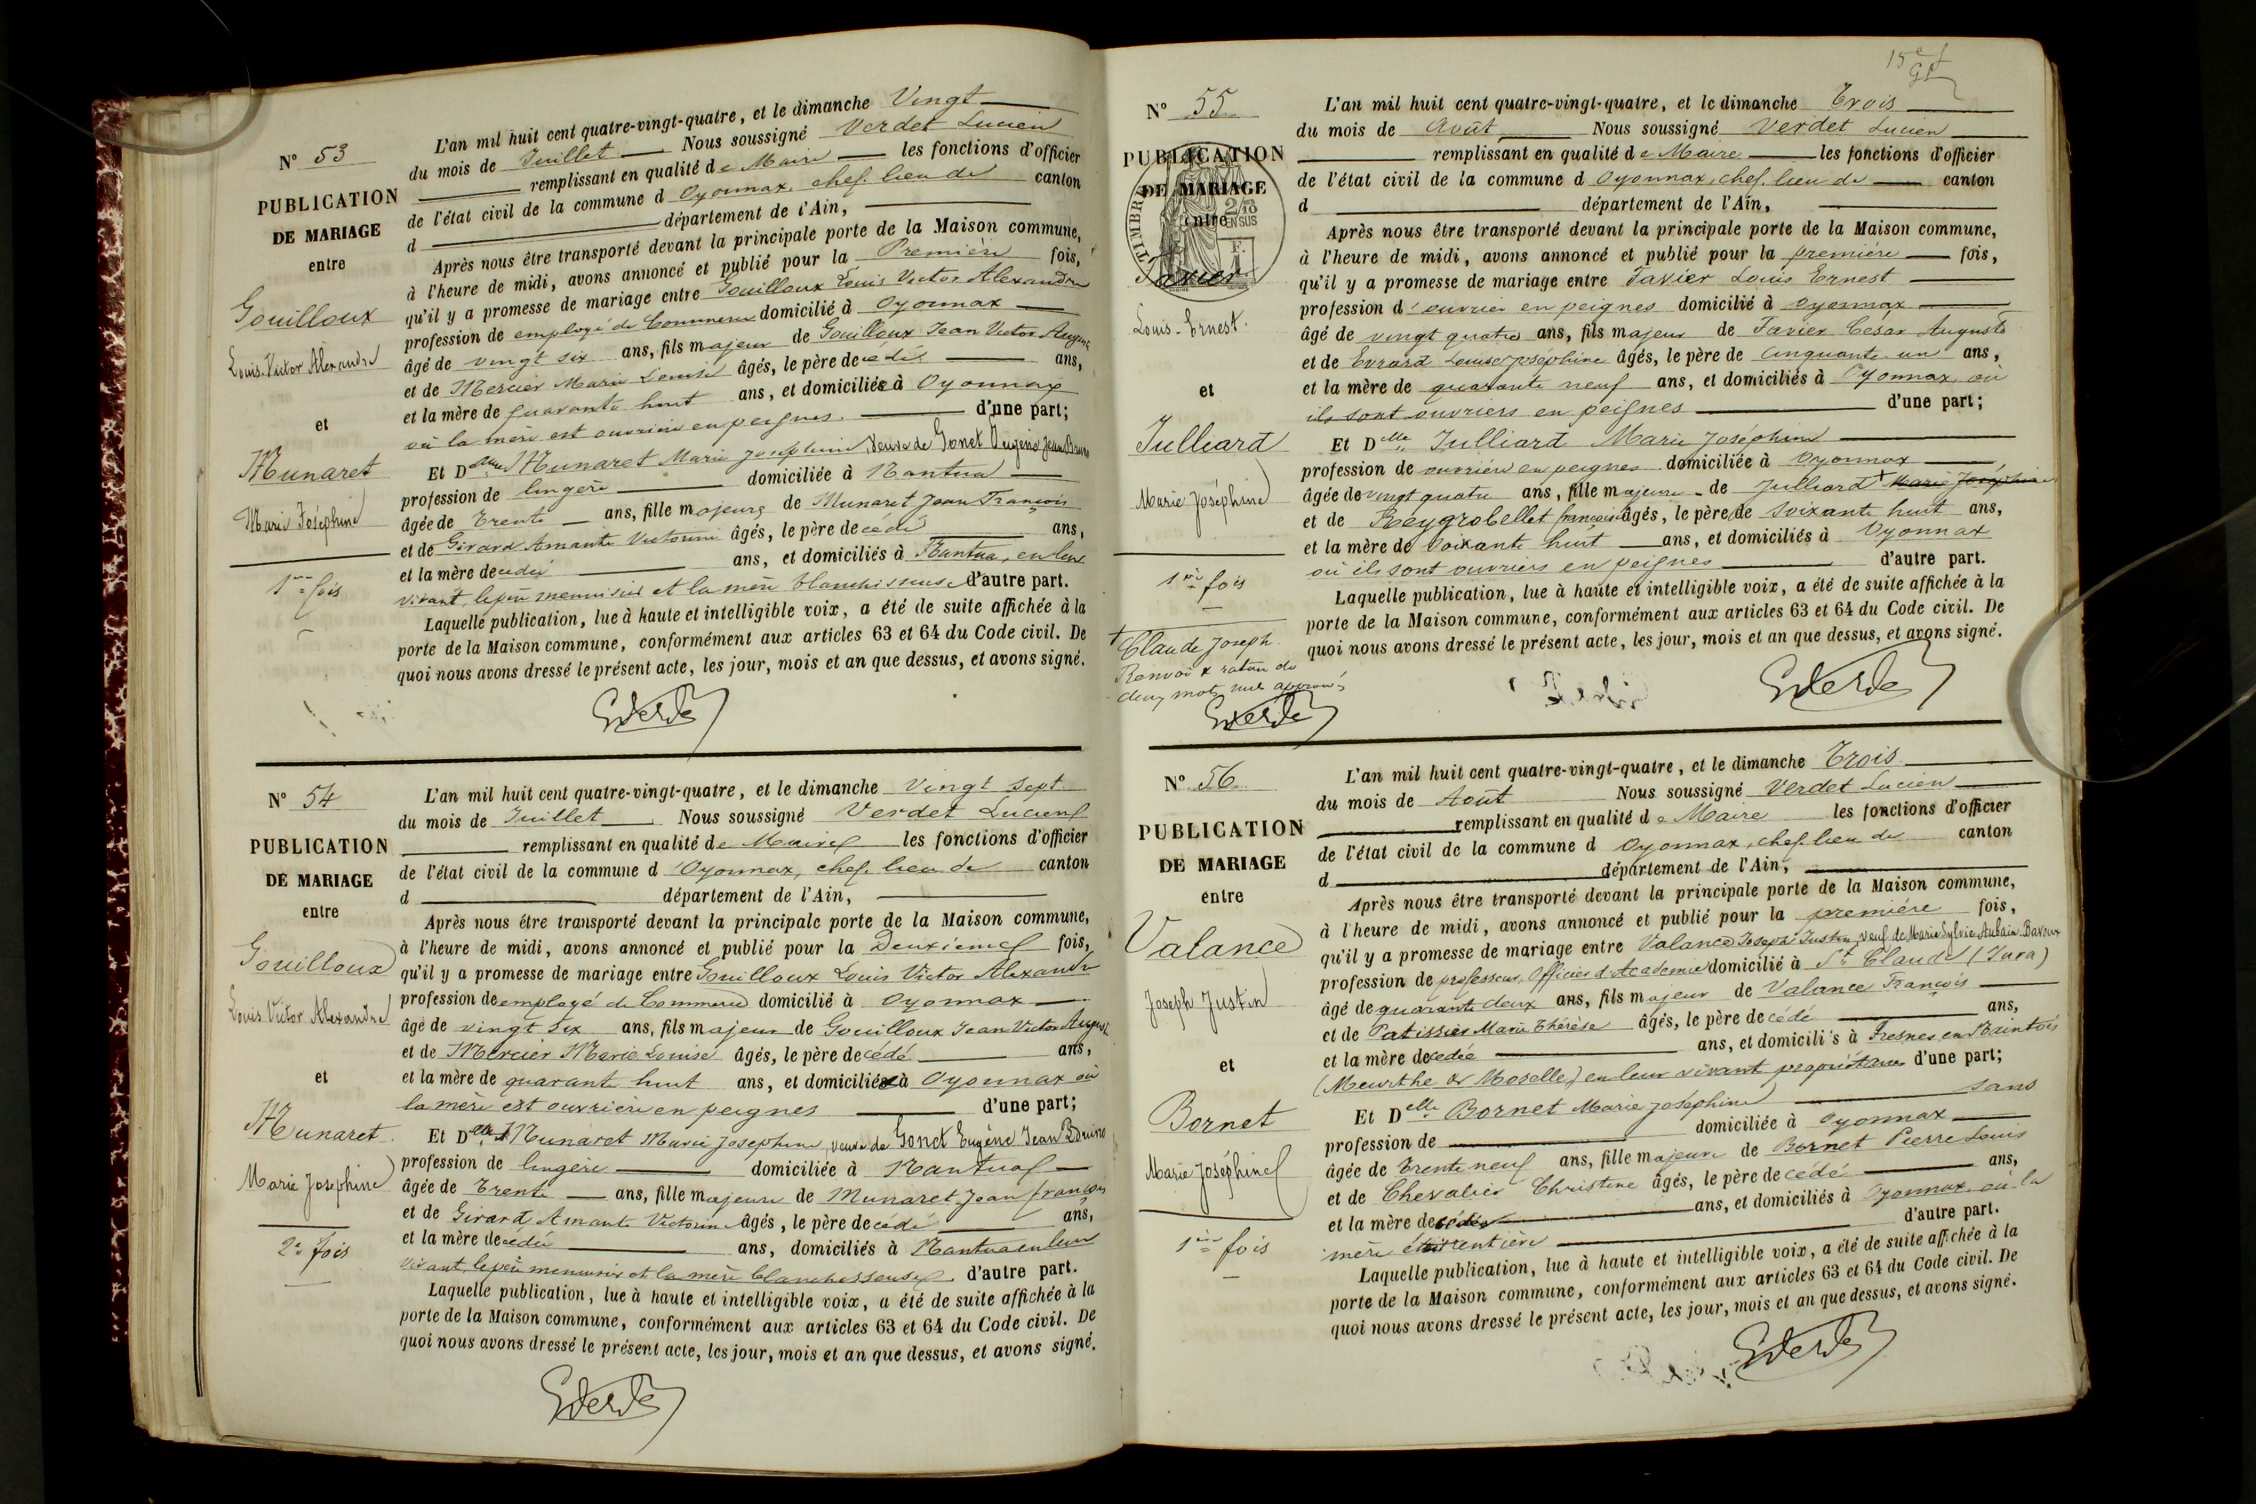 N° 53
PUBLICATION
DE MARIAGE
entre
Gouilloux
Louis Victor Alexandre
et
Munaret
Marie Joséphine
1re fois
L'an mil huit cent quatre-vingt-quatre, et le dimanche Vingt
du mois de Juillet Nous soussigné Verdet Lucien
remplissant en qualité de Maire les fonctions d'officier
de l'état civil de la commune d Oyonnax, chef. lieu de canton
d département de l'Ain,
Après nous être transporté devant la principale porte de la Maison commune,
à l'heure de midi, avons annoncé et publié pour la Première fois,
qu'il y a promesse de mariage entre Gouilloux Louis Victor Alexandre
profession de employé de Commerce domicilié à Oyonnax
âgé de vingt six ans, fils majeur de Gouilloux Jean Victor Auguste
et de Mercier Marie Louise âgés, le père decédé ans,
et la mère de quarante huit ans, et domiciliée à Oyonnax
où la mère est ouvrière en peignes. d'une part;
Et Dame Munaret Marie Joséphine, veuve de Gonet Eugène Jean Bruno
profession de lingère domiciliée à Nantua
âgée de Trente ans, fille majeure de Munaret Jean François
et de Girard Amante Victorine âgés, le père decédé ans,
et la mère decédée ans, et domiciliés à Nantua, en leur
vivant, le père menuisier et la mère blanchisseuse d'autre part.
Laquelle publication, lue à haute et intelligible voix, a été de suite affichée à la
porte de la Maison commune, conformément aux articles 63 et 64 du Code civil. De
quoi nous avons dressé le présent acte, les jour, mois et an que dessus, et avons signé.
N° 54
PUBLICATION
DE MARIAGE
entre
Gouilloux
Louis Victor Alexandre
et
Munaret
Marie Josephine
2e fois
L'an mil huit cent quatre-vingt-quatre, et le dimanche Vingt sept
du mois de Juillet Nous soussigné Verdet Lucien
remplissant en qualité de Maire les fonctions d'officier
de l'état civil de la commune d'Oyonnax, chef. lieu de canton
d département de l'Ain,
Après nous être transporté devant la principale porte de la Maison commune,
à l'heure de midi, avons annoncé et publié pour la Deuxieme fois,
qu'il y a promesse de mariage entre Gouilloux Louis Victor Alexandre
profession de employé de Commerce domicilié à Oyonnax
âgé de vingt six ans, fils majeur de Gouilloux Jean Victor August
et de Mercier Marie Louise âgés, le père decédé ans,
et la mère de quarante huit ans, et domiciliée à Oyonnax où
la mère est ouvrière en peignes d'une part;
Et Dame Munaret Marie Josephine, veuve de Gonet Eugène Jean Bruno
profession de lingère domiciliée à Nantua
âgée de Trente ans, fille majeure de Munaret Jean françois
et de Girard Amante Victorine âgés, le père decédé ans,
et la mère decédée ans, domiciliés à Nantua en leur
vivant, le père menuisier et la mère blanchisseuse. d'autre part.
Laquelle publication, lue à haute et intelligible voix, a été de suite affichée à la
porte de la Maison commune, conformément aux articles 63 et 64 du Code civil. De
quoi nous avons dressé le présent acte, les jour, mois et an que dessus, et avons signé.
15e f
N° 55
PUBLICATION
DE MARIAGE
entre
TIMBRE
2/10
EN SUS
Tavier
Louis-Ernest.
et
Julliard
Marie Joséphine
1re fois
+ Claude Joseph.
Renvoi & rature de
deux mots nuls approuvés
L'an mil huit cent quatre-vingt-quatre, et le dimanche Trois
du mois de Août Nous soussigné Verdet Lucien
remplissant en qualité de Maire les fonctions d'officier
de l'état civil de la commune d Oyonnax, chef. lieu de canton
d département de l'Ain,
Après nous être transporté devant la principale porte de la Maison commune,
à l'heure de midi, avons annoncé et publié pour la première fois,
qu'il y a promesse de mariage entre Tavier Louis Ernest
profession d'ouvrier en peignes domicilié à Oyonnax
âgé de vingt quatre ans, fils majeur de Tavier César Auguste
et de Evrard Louise Joséphine âgés, le père de cinquante un ans,
et la mère de quarante neuf ans, et domiciliés à Oyonnax où
ils sont ouvriers en peignes d'une part;
Et Delle Julliard Marie Joséphine
profession de ouvrière en peignes domiciliée à Oyonnax
âgée de vingt quatre ans, fille majeure de Julliard + Marie Joséphine
et de Reygrobellet françoise âgés, le père de soixante huit ans,
et la mère de soixante huit ans, et domiciliés à Oyonnax
où ils sont ouvriers en peignes d'autre part.
Laquelle publication, lue à haute et intelligible voix, a été de suite affichée à la
porte de la Maison commune, conformément aux articles 63 et 64 du Code civil. De
quoi nous avons dressé le présent acte, les jour, mois et an que dessus, et avons signé.
N° 56
PUBLICATION
DE MARIAGE
entre
Valance
Joseph Justin
et
Bornet
Marie Joséphine
1re fois
L'an mil huit cent quatre-vingt-quatre, et le dimanche Trois
du mois de Août Nous soussigné Verdet Lucien
remplissant en qualité de Maire les fonctions d'officier
de l'état civil de la commune d Oyonnax, chef. lieu de canton
d département de l'Ain,
Après nous être transporté devant la principale porte de la Maison commune,
à l'heure de midi, avons annoncé et publié pour la première fois,
qu'il y a promesse de mariage entre Valance Joseph Justin, veuf de Marie Sylvie Aubain Bavoux
profession de professeur, Officier d'Academie domicilié à St Claude (Jura)
âgé de quarante deux ans, fils majeur de Valance François
et de Patissier Marie Thérèse âgés, le père decédé ans,
et la mère decedée ans, et domiciliés à Fresnes en Saintois
(Meurthe & Moselle) en leur vivant propriétaires d'une part;
Et Delle Bornet Marie Joséphine sans
profession de domiciliée à Oyonnax
âgée de Trente neuf ans, fille majeure de Bornet Pierre Louis
et de Chevalier Christine âgés, le père decédé ans,
et la mère decédée ans, et domiciliés à Oyonnax où la
mère était rentière d'autre part.
Laquelle publication, lue à haute et intelligible voix, a été de suite affichée à la
porte de la Maison commune, conformément aux articles 63 et 64 du Code civil. De
quoi nous avons dressé le présent acte, les jour, mois et an que dessus, et avons signé.